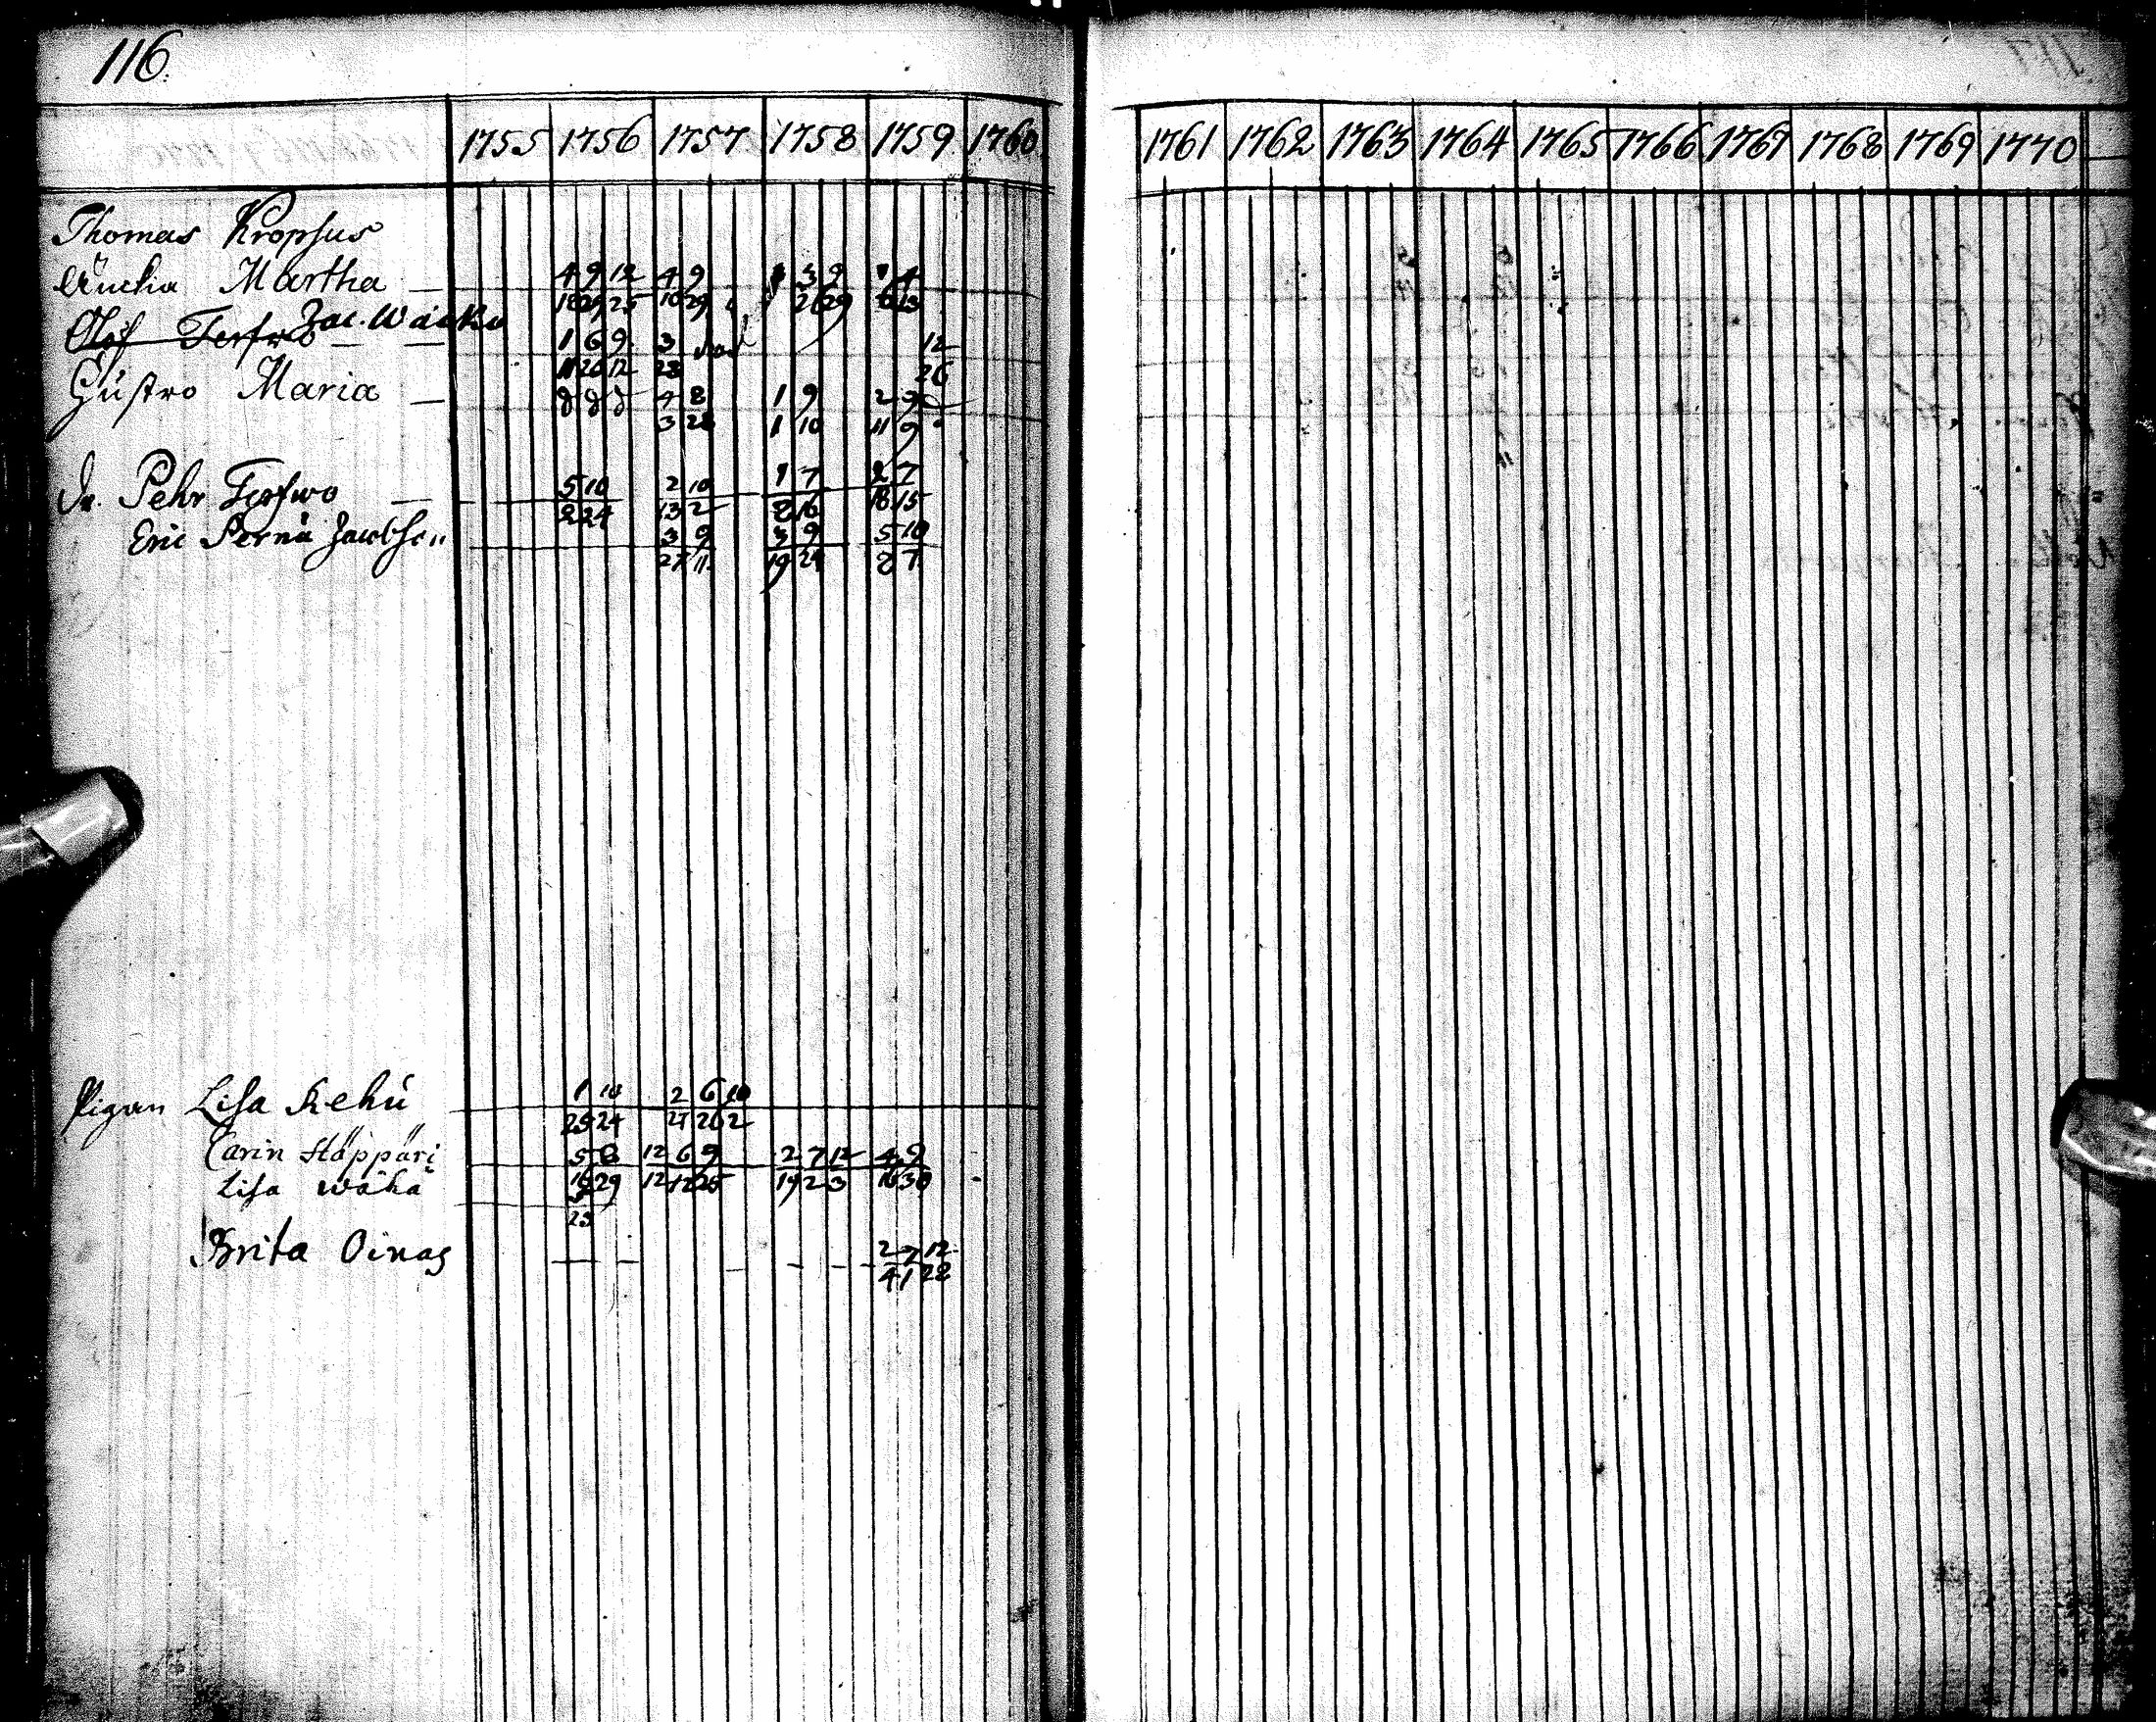 116.
1755 1756 1757 1758 1759 1760
1761 1762 1763 1764 1765 1766 1767 1768 1769 1770
Thomas Kropsus
Änckia Martha
4 9 12 4 9 3 9 4
18 29 25 10 29 26 29 13
Zac. Wäcku
Olof
1 6 9 3 död 12
11 26 12 28 26
Gústro Maria
4 8 1 9 2 9
3 28 1 10 11 9
Dr. Pehr
5 10 2 10 1 7 2 7
2 24 13 2 8 16 18 15
Eric Pernú Jacobson
3 9 3 9 5 10
27 11 19 24 8 7
Pigan Lisa Kehú
1 10 2 6 10
25 24 27 26 2
Carin Häppäri
5 8 12 6 9 2 7 12 4 9
16 29 12 12 25 19 2 3 16 30
Lisa Wäha
23
Brita Oinas
2 7 12
4 1 22